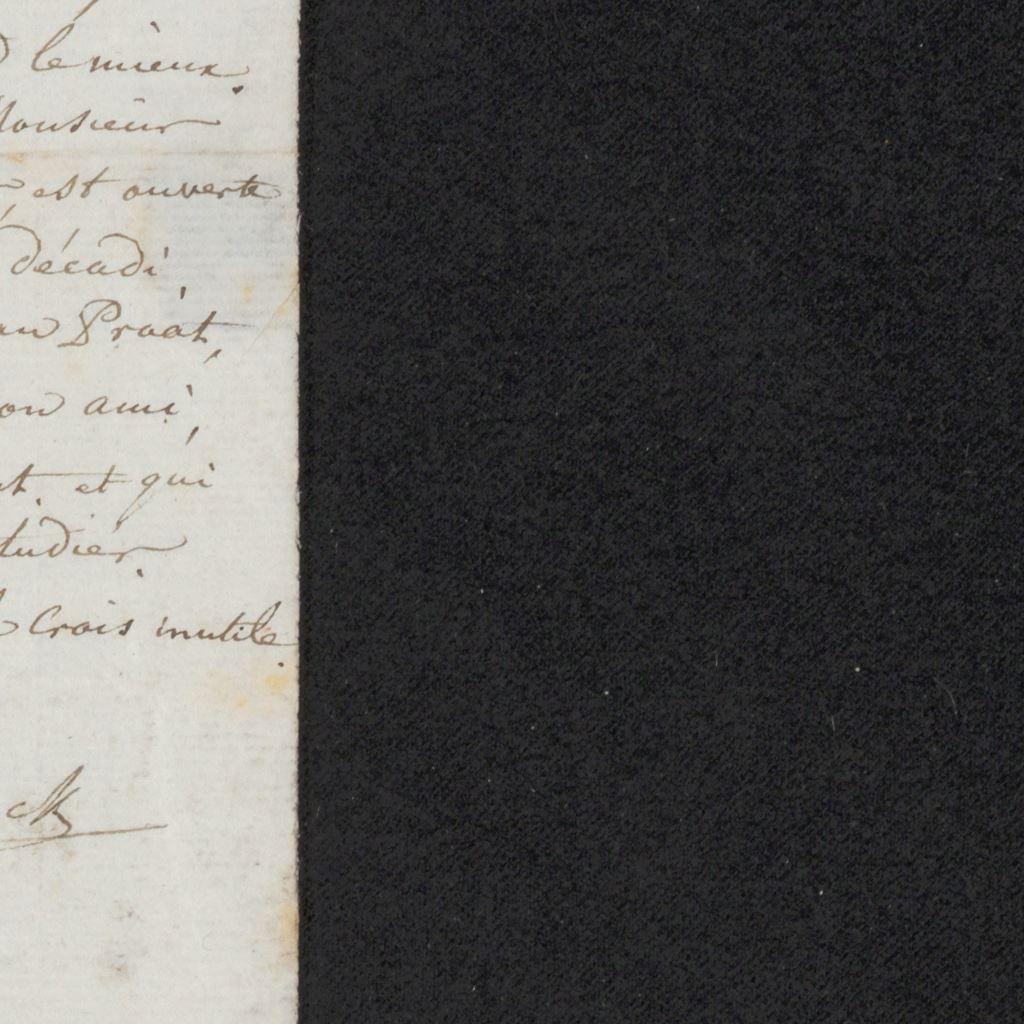 le mieux.
Monsieur
est ouverte
décadi
au Proat,
on ami,
et qui
tudier
crois inutile.
ck